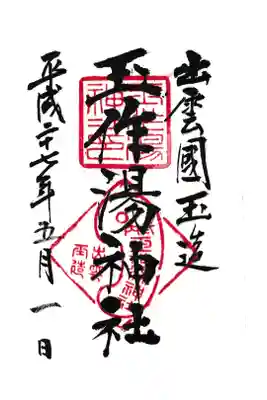 出雲國玉造
玉作湯神社
平成二十七年五月一日